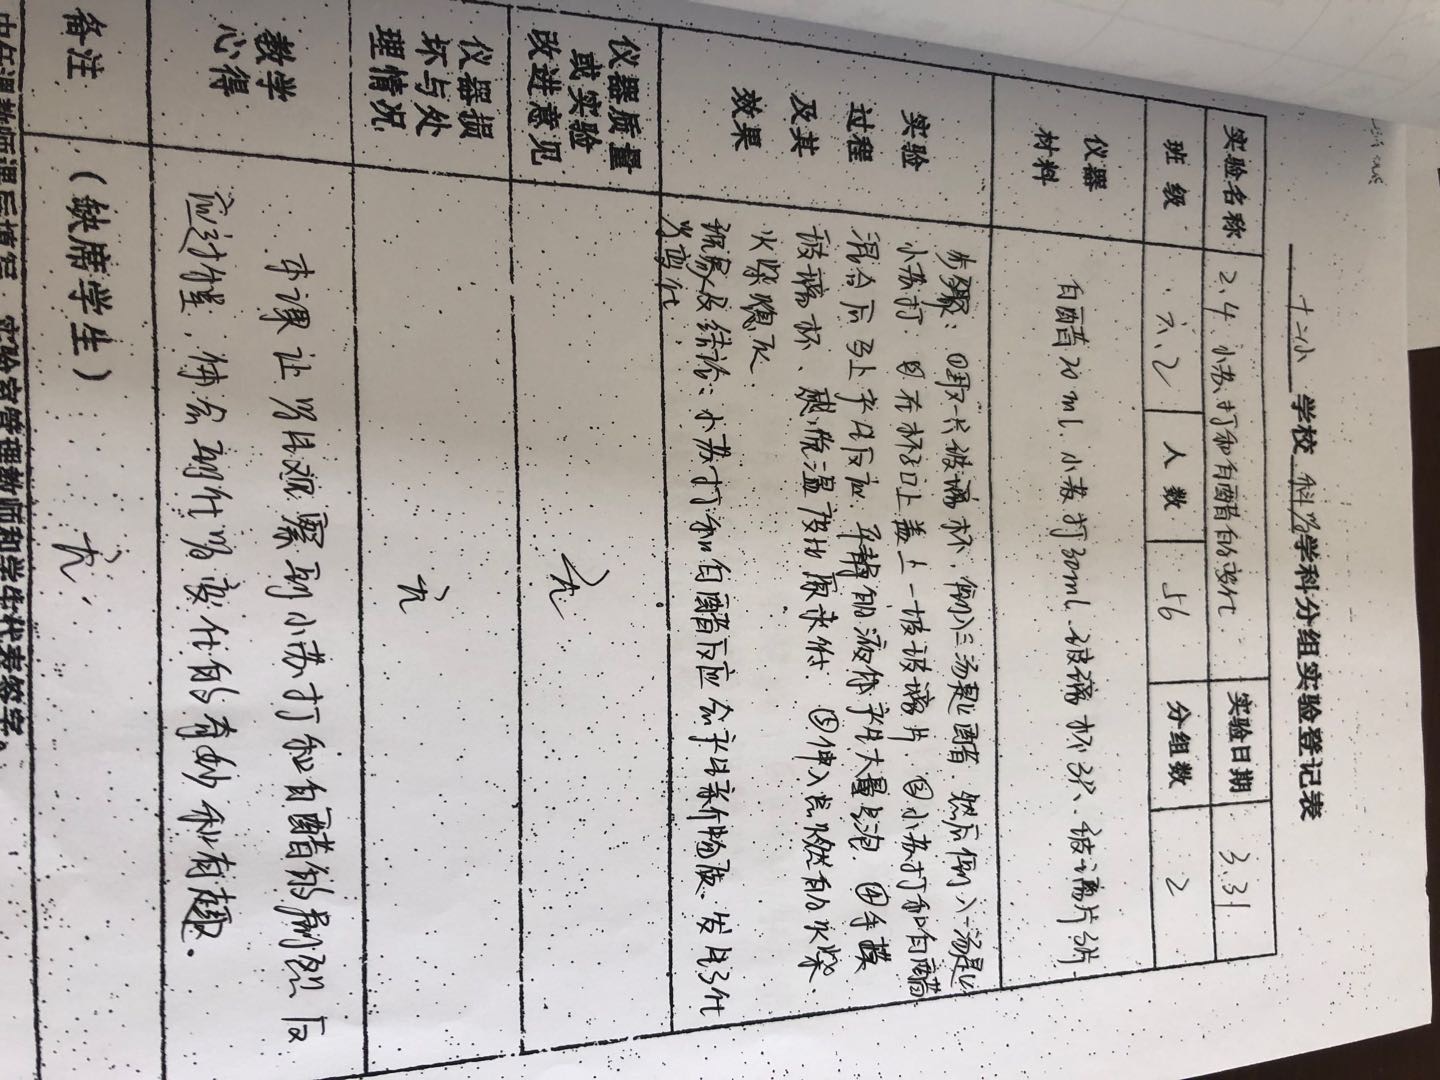 十二小 学校 科学 学科分组实验登记表
实验名称 2.4 小苏打和白醋的变化 实验日期 3.31
班级 六.2 人数 56 分组数 2
仪器材料 白醋20ml、小苏打30ml、玻璃杯3只、玻璃片3片
实验过程及其效果
步骤：①取一只玻璃杯，倒入三汤匙醋，然后倒入一汤匙
小苏打，且在杯口上盖上一块玻璃片 ②小苏打和白醋
混合后马上产生反应，平静的液体产生大量气泡. ④手摸
玻璃杯、感觉温度比原来低. ⑤伸入点燃的火柴、
火柴熄灭.
现象及结论：小苏打和白醋反应会产生新物质、发生了化
学变化
仪器质量或实验改进意见 无
仪器损坏与处理情况 无
教学心得
本课让学生观察到小苏打和白醋的剧烈反
应过程，体会到化学变化的奇妙和有趣.
备注 （缺席学生） 无.
由任课教师课后填写，实验室管理教师和学生代表签字。